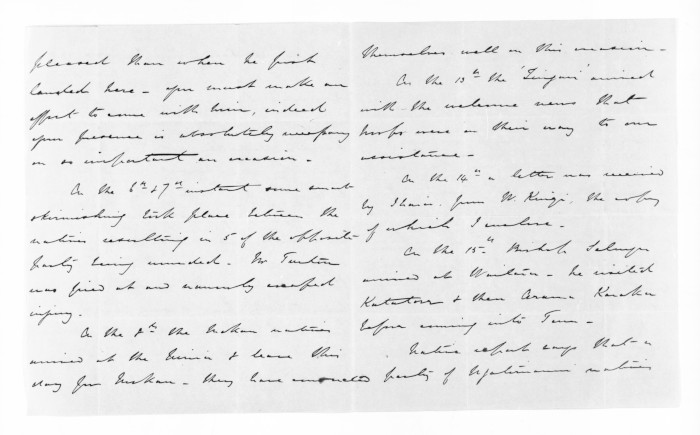 pleased than when he first
landed here - you must make an
effort to come with him, indeed
your presence is absolutely necessary
on so important an occasion -
On the 6th & 7th instant some smart
skirmishing took place between the
natives resulting in 5 of the opposite
party being wounded - Mr Turton
was fired at and narrowly escaped
injury.
On the 8th the Mokau natives
arrived at the & leave this
day for Mokau - they have conducted
themselves well on this occasion -
On the 13th the 'Zingari' arrived
with the welcome news that
troops were on their way to our
assistance -
On the 14th a letter was received
by from W. Kingi, the copy
of which I enclose -
On the 15th Bishop Selwyn
arrived at Waitara - he visited
Katatore & then Arama Karaka
before coming into Town -
Native report says that a
party of Ngatiruanui natives